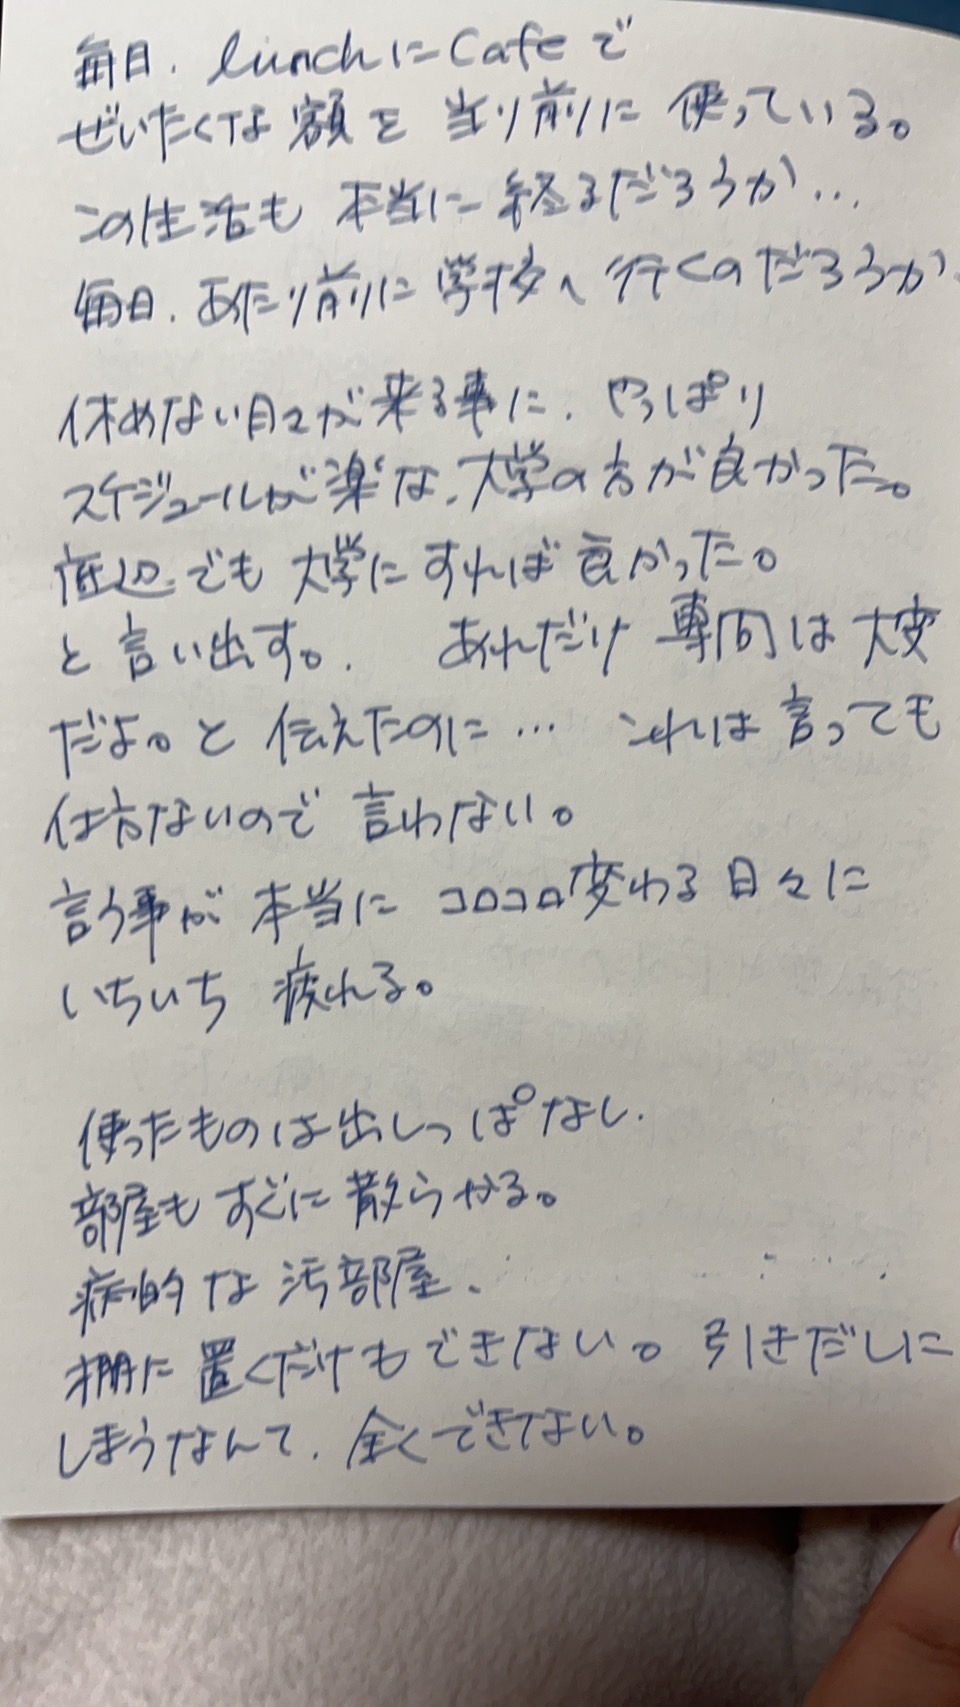 毎日、lunchにCafeで
ぜいたくな額を当り前に使っている。
この生活も本当に終るだろうか…
毎日、あたり前に学校へ行くのだろうか
休めない日々が来る事に、やっぱり
スケジュールが楽な、大学の方が良かった。
底辺でも大学にすれば良かった。
と言い出す。 あれだけ専門は大変
だよ。と伝えたのに… これは言っても
仕方ないので言わない。
言う事が本当にコロコロ変わる日々に
いちいち疲れる。
使ったものは出しっぱなし、
部屋もすぐに散らかる。
病的な汚部屋、
棚に置くだけもできない。引きだしに
しまうなんて、全くできない。